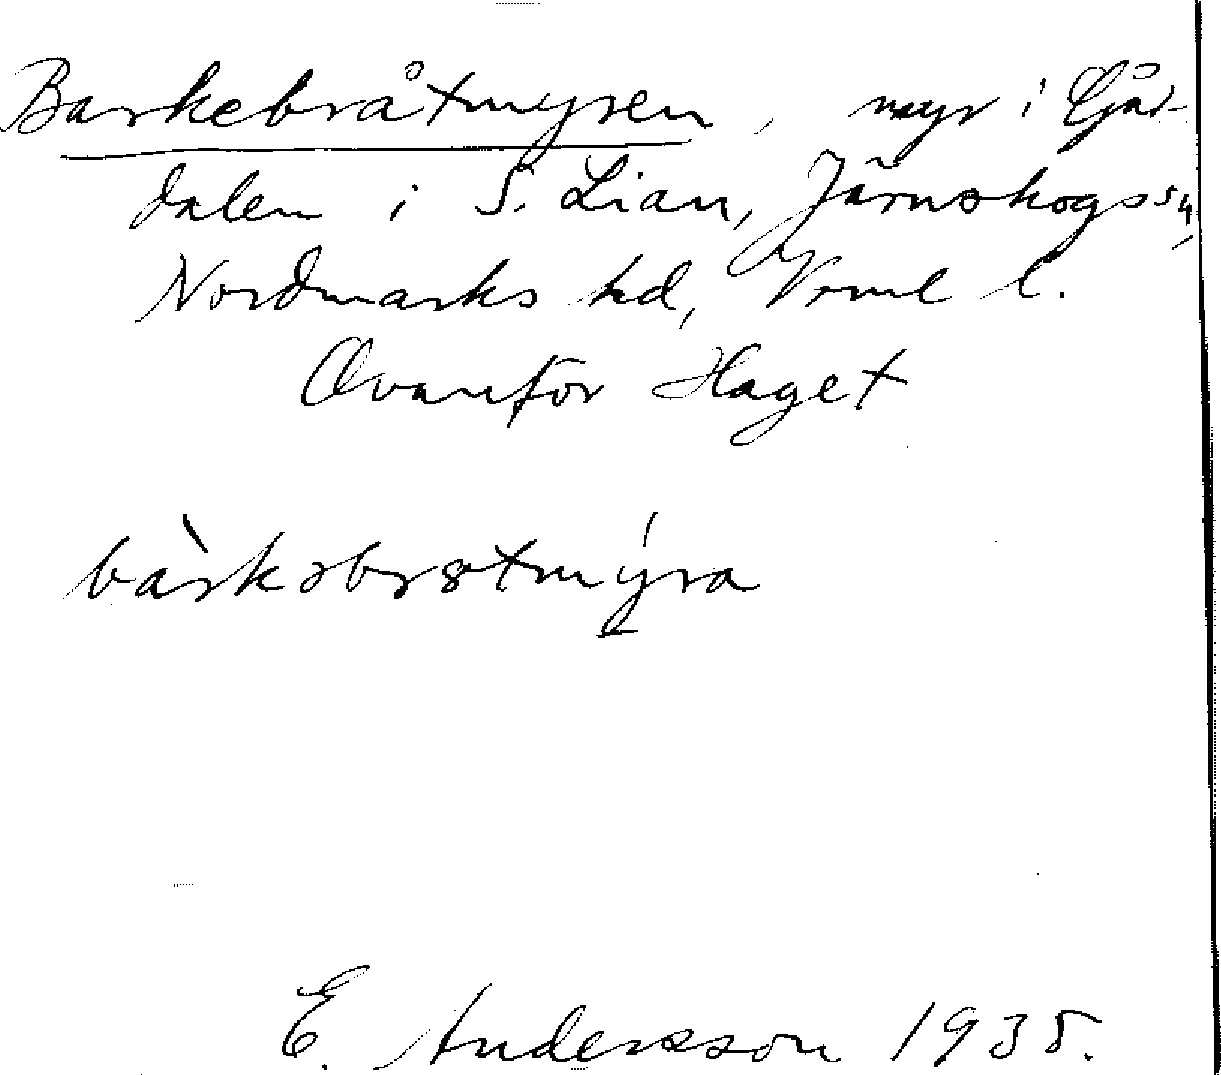 Barkebråtmyren, myr i Ljåd-
dalen i S. Lian, Järnskogs sn,
Nordmarks hd, Vrml l.
Ovanför Haget
bàrkəbrɷtmýra
E. Andersson 1935.